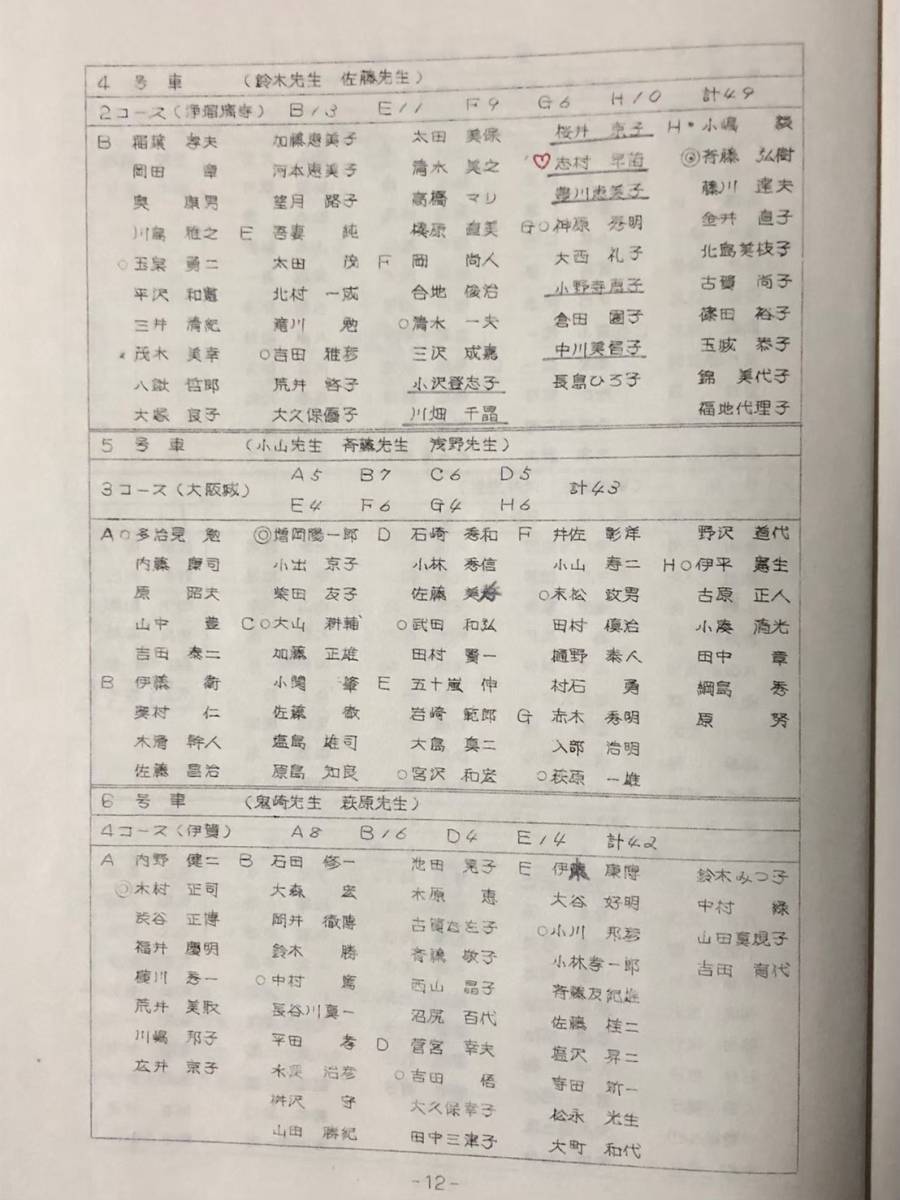 4 号 車 (鈴木先生 佐藤先生)
2コース(浄瑠璃寺) B13 E11 F9 G6 H10 計49
B 稲葉 孝夫 加藤恵美子 太田 美保 桜井 京子 H 小嶋 毅
岡田 章 河本恵美子 清水 美之 志村 早苗 ◎斉藤 弘樹
奥 康男 望月 路子 高橋 マリ 豊川恵美子 藤川 達夫
川島 雅之 E 吾妻 純 榛原 直美 G○神原 秀明 金井 直子
○玉泉 勇二 太田 茂 F 岡 尚人 大西 礼子 北島美枝子
平沢 和憲 北村 一成 合地 俊治 小野寺恵子 古賀 尚子
三井 清紀 滝川 勉 ○清水 一夫 倉田 園子 篠田 裕子
茂木 美幸 ○吉田 雅彦 三沢 成嘉 中川美智子 玉城 恭子
八鍬 哲郎 荒井 啓子 小沢登志子 長島ひろ子 錦 美代子
大塚 良子 大久保優子 川畑 千晶 福地代理子
5 号 車 (小山先生 斉藤先生 浅野先生)
A5 B7 C6 D5
3コース(大阪城) 計43
E4 F6 G4 H6
A○多治見 勉 ◎増岡陽一郎 D 石崎 秀和 F 井佐 彰洋 野沢 道代
内藤 康司 小出 京子 小林 秀信 小山 寿二 H○伊平 憲生
原 昭夫 柴田 友子 佐藤 ○末松 政男 古原 正人
山中 豊 C○大山 耕輔 ○武田 和弘 田村 慎治 小湊 満光
吉田 泰二 加藤 正雄 田村 賢一 樋野 泰人 田中 章
B 伊藤 衛 小関 肇 E 五十嵐 伸 村石 勇 綱島 秀
奥村 仁 佐藤 徹 岩崎 範郎 G 赤木 秀明 原 努
木滑 幹人 塩島 雄司 大島 真二 入部 治明
佐藤 昌治 原島 知良 ○宮沢 和宏 ○萩原 一雄
6 号 車 (鬼崎先生 萩原先生)
4コース(伊賀) A8 B16 D4 E14 計42
A 内野 健二 B 石田 修一 池田 晃子 E 伊 康博 鈴木みつ子
◎木村 正司 大森 宏 木原 恵 大谷 好明 中村 緑
渋谷 正博 岡井 徹博 古賀左子 ○小川 邦彦 山田真規子
福井 慶明 鈴木 勝 斉藤 敬子 小林孝一郎 吉田 育代
横川 秀一 ○中村 篤 西山 晶子 斉藤友紀雄
荒井 美歌 長谷川真一 沼尻 百代 佐藤 桂二
川嶋 邦子 平田 孝 D 菅宮 幸夫 塩沢 昇二
広井 京子 水尾 治彦 ○吉田 悟 寺田 新一
桝沢 守 大久保幸子 松永 光生
山田 勝紀 田中三津子 大町 和代
-12-